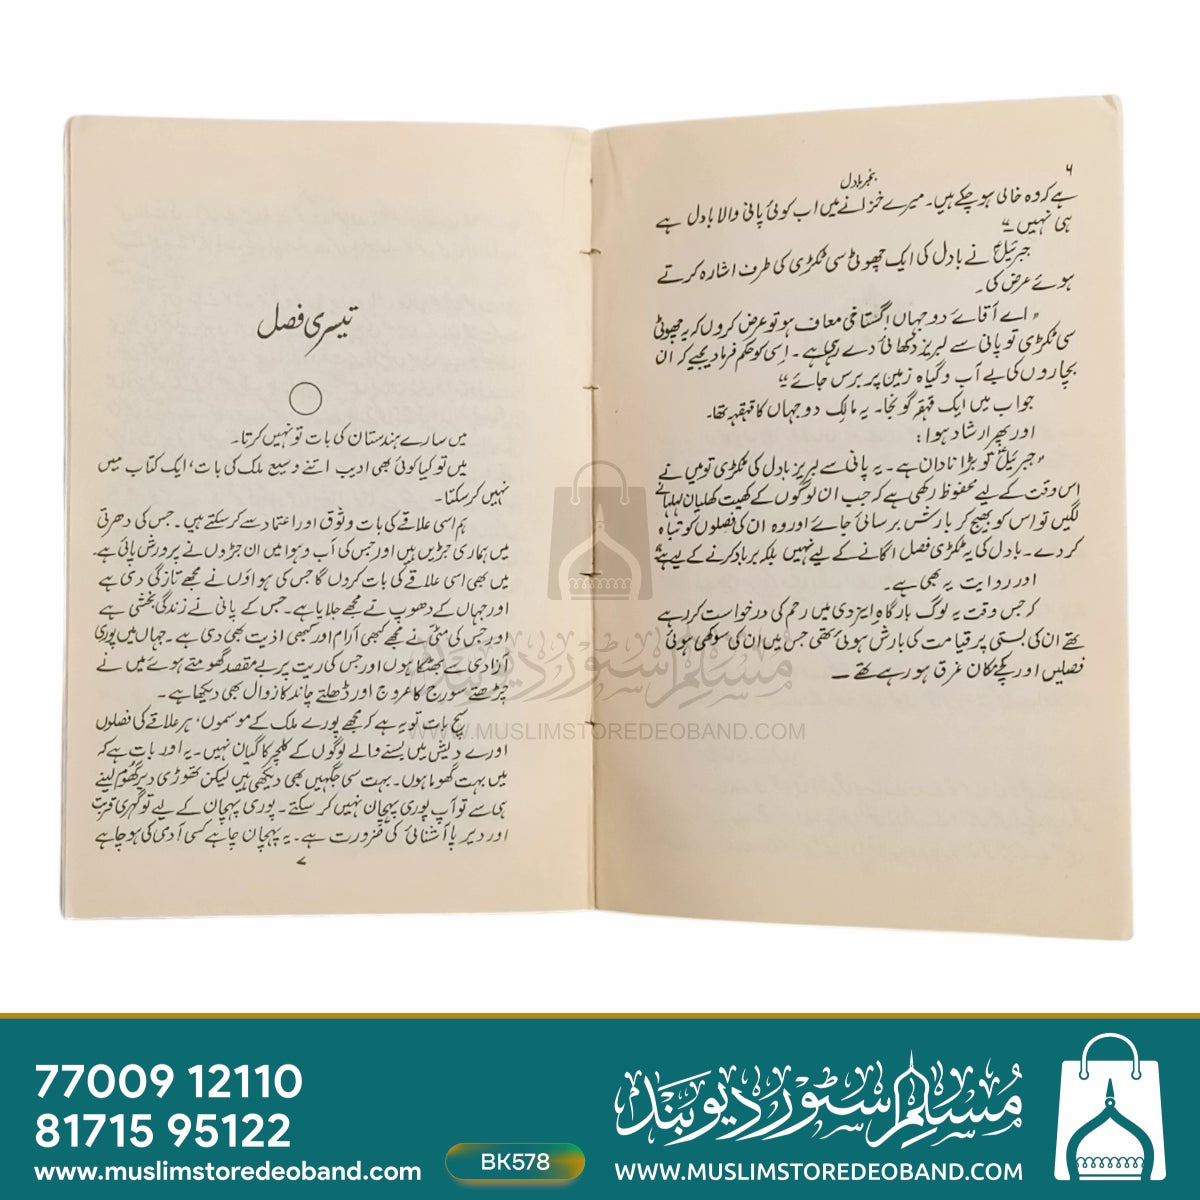 ۶
بنجر بادل
ہے کہ وہ خالی ہو چکے ہیں۔ میرے خزانے میں اب کوئی پانی والا بادل ہے
ہی نہیں ۔“
جبرئیلؑ نے بادل کی ایک چھوٹی سی ٹکڑی کی طرف اشارہ کرتے
ہوئے عرض کی۔
”اے آقائے دوجہاں! گستاخی معاف ہو تو عرض کروں کہ یہ چھوٹی
سی ٹکڑی تو پانی سے لبریز دکھائی دے رہی ہے۔ اِسی کو حکم فرما دیجیے کہ ان
بچاروں کی بے آب و گیاہ زمین پر برس جائے“
جواب میں ایک قہقہہ گونجا۔ یہ مالِک دوجہاں کا قہقہہ تھا۔
اور پھر ارشاد ہوا:
”جبرئیلؑ تو بڑا نادان ہے۔ یہ پانی سے لبریز بادل کی ٹکڑی تو میں نے
اس وقت کے لیے محفوظ رکھی ہے کہ جب ان لوگوں کے کھیت کھلیان لہلہانے
لگیں تو اس کو بھیج کر بارش برسائی جائے اور وہ ان کی فصلوں کو تباہ
کر دے۔ بادل کی یہ ٹکڑی فصل اگانے کے لیے نہیں بلکہ برباد کرنے کے لیے ہے“
اور روایت یہ بھی ہے۔
کہ جس وقت یہ لوگ بارگاہِ ایزدی میں رحم کی درخواست کر رہے
تھے ان کی بستی پر قیامت کی بارش ہوئی تھی جس میں ان کی سوکھی ہوئی
فصلیں اور پکے مکان غرق ہو رہے تھے ــ
تیسری فصل
میں سارے ہندستان کی بات تو نہیں کرتا۔
میں تو کیا کوئی بھی ادیب اتنے وسیع ملک کی بات، ایک کتاب میں
نہیں کر سکتا۔
ہم اسی علاقے کی بات وثوق اور اعتماد سے کر سکتے ہیں۔ جس کی دھرتی
میں ہماری جڑیں ہیں اور جس کی آب و ہوا میں ان جڑوں نے پرورش پائی ہے۔
میں بھی اسی علاقے کی بات کروں گا جس کی ہواؤں نے مجھے تازگی دی ہے
اور جہاں کے دھوپ نے مجھے جلایا ہے۔ جس کے پانی نے زندگی بخشی ہے
اور جس کی مٹی نے مجھے کبھی آرام اور کبھی اذیت بھی دی ہے۔ جہاں میں پوری
آزادی سے بھٹکا ہوں اور جس کی ریت پر بے مقصد گھومتے ہوئے میں نے
چڑھتے سورج کا عروج اور ڈھلتے چاند کا زوال بھی دیکھا ہے۔
سچ بات تو یہ ہے کہ مجھے پورے ملک کے موسموں، ہر علاقے کی فصلوں
اور ے دیش میں بسنے والے لوگوں کے کلچر کا گیان نہیں۔ یہ اور بات ہے کہ
میں بہت گھوما ہوں۔ بہت سی جگہیں بھی دیکھی ہیں لیکن تھوڑی دیر گھوم لینے
ہی سے تو آپ پوری پہچان نہیں کر سکتے۔ پوری پہچان کے لیے تو گہری قربت
اور دیر پا آشنائی کی ضرورت ہے۔ یہ پہچان چاہے کسی آدمی کی ہو چاہے
۷
مسلم سٹور دیوبند
WWW.MUSLIMSTOREDEOBAND.COM
77009 12110
81715 95122
www.muslimstoredeoband.com
BK578
مسلم سٹور دیوبند
WWW.MUSLIMSTOREDEOBAND.COM